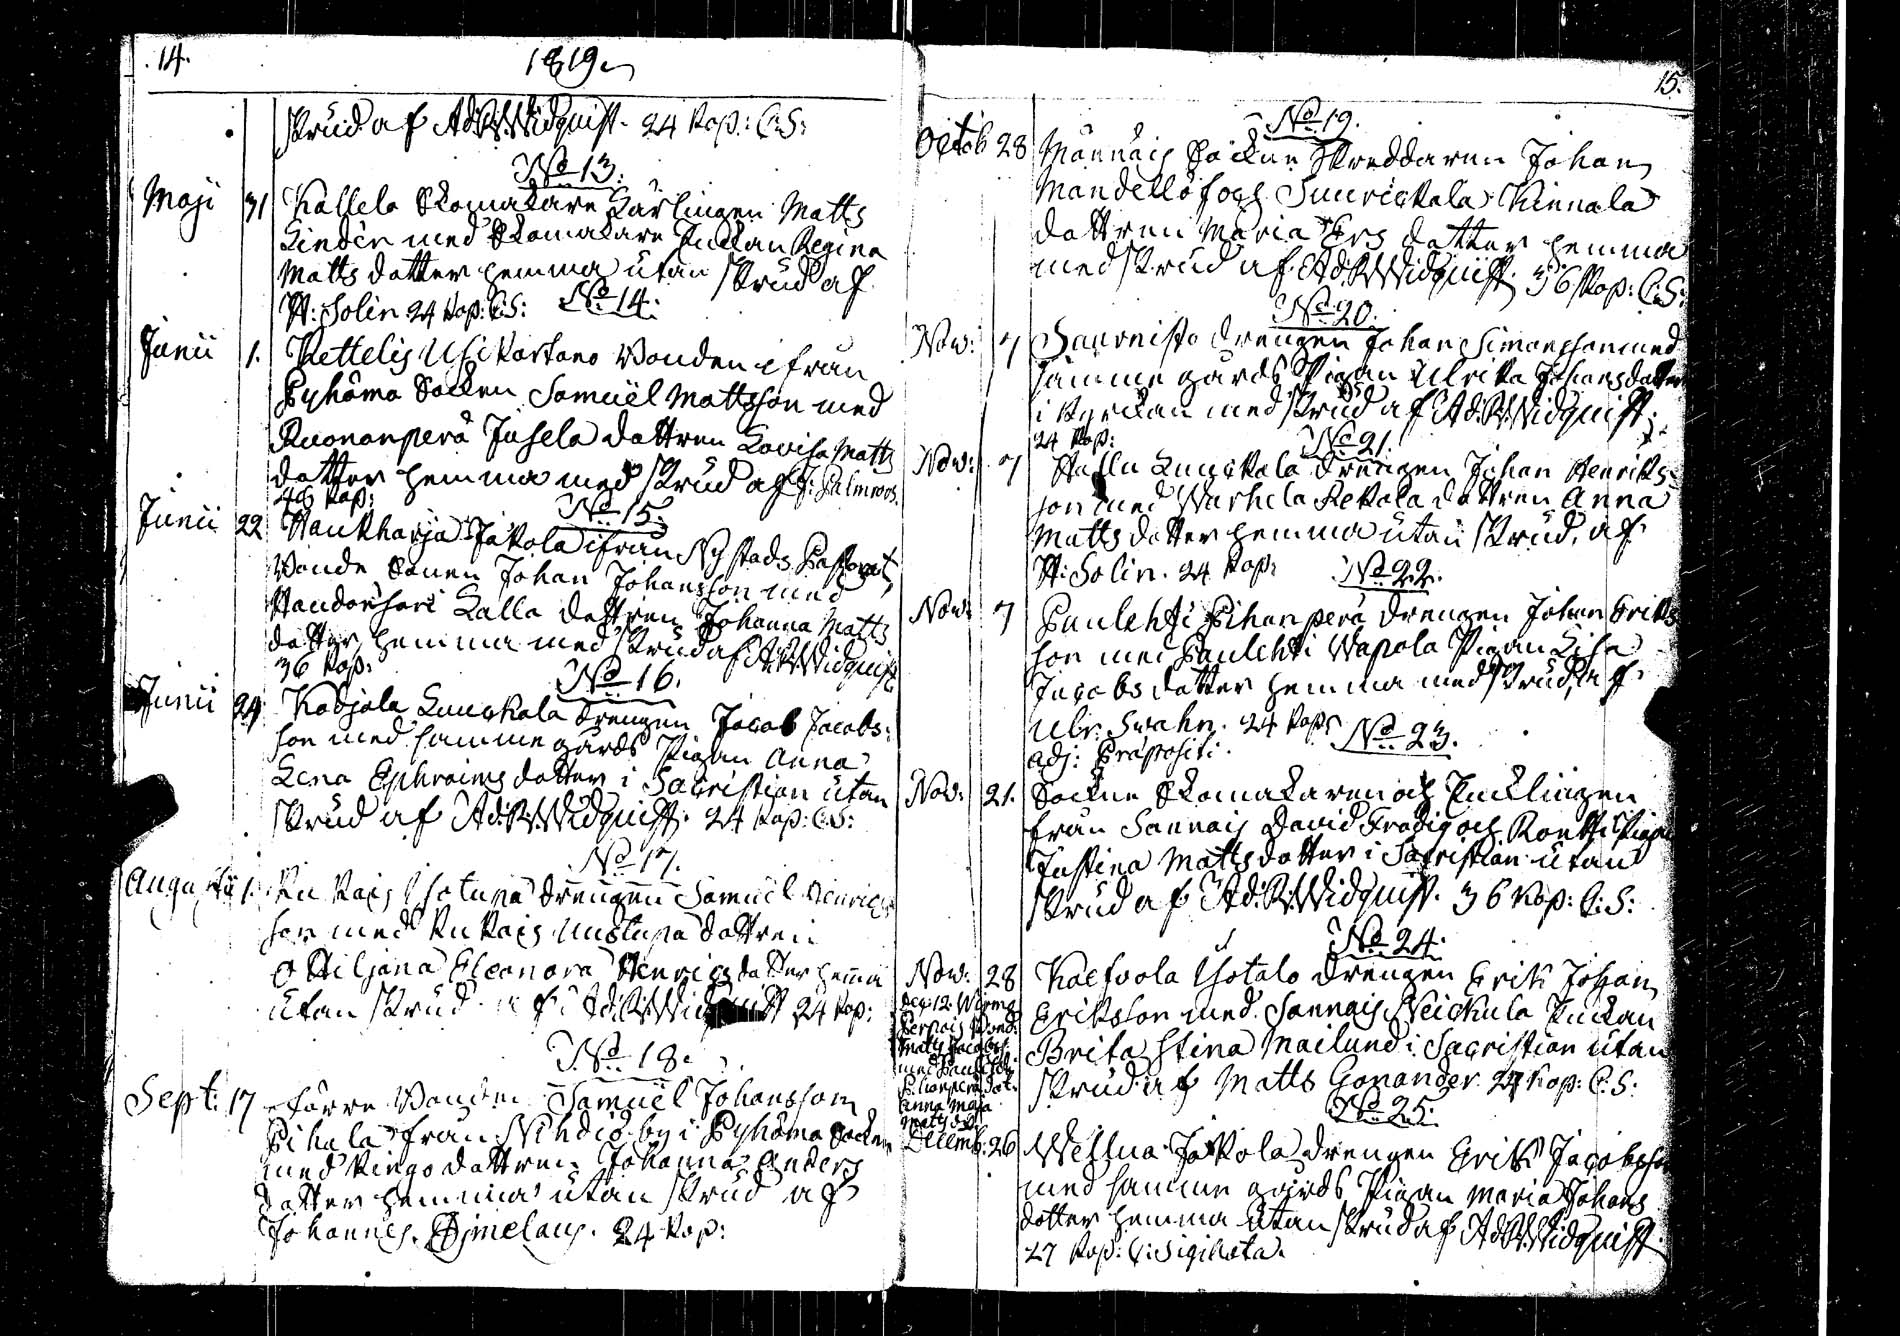 14.
1819.
skrud af Ad: Widquist. 24 Kop: C:S:
No 13.
Maji 31 Kallela Skomakare Kärlingen Matts
Lindén med Skomakare Enckan Regina
Matts dotter hemma utan skrud af
H: Solin 24 Kop: C:S: No 14.
Junii 1. Kettelis Usikartano Bonden ifrån
Pyhäma Socken Samuel Mattsson med
Ruonanperä Jusela dottren Lovisa Matts
dotter hemma med skrud af J: Palmroos.
48 Kop:
No 15.
Junii 22 Haukharja Jakola ifrån Nystads Pastorat,
Bonde Sonen Johan Johansson med
Kalla dottren Johanna Matts
dotter hemma med skrud af Ad: Widquist
36 Kop:
No 16.
Junii 24 Kodjala Luuckala drengen Jacob Jacobs:
son med samme gårds Pigan Anna
Lena Ephraims dotter i Sacristian utan
skrud af Ad: Widquist. 24 Kop: C:S:
No 17.
Augustii 1. drengen Samuel Henrics
son med dottren
Ottiljana Eleonora Henrics dotter hema
utan skrud af Ad: 24 Kop:
No 18.
Sept: 17 förre Bonden Samuel Johansson
Pihala från by i Pyhäma Socken
med Ringo dottren Johanna Anders
dotter hemma utan skrud af
Johannes 24 Kop:
15.
No 19.
Octob 28 Männäis Sockne Skreddaren Johan
Mandellöf och Suurickala Kinnala
dottren Maria Ers dotter hemma
med skrud af Ad: Widquist 36 Kop: C:S:
No 20.
Now: 7 drengen Johan Simonsson med
samme gårds Pigan Ulrika Johansdotter
i Kyrckan med skrud af Ad: Widquist:
24 Kop:
No 21.
Now: 7 Luuckala drengen Johan Henriks
son med Warhela Rekola dottren Anna
Matts dotter hemma utan skrud, af
H: Solin. 24 Kop: No 22.
Now: 7 Paulehti Pihanperä drengen Johan Eriks
son med Paulehti Wapola Pigan Lisa
Jacobs dotter hemma med skrud, af
Ulr: Swahn. 24 Kop: No 23.
adj: Præpositi.
Nov: 21. Sockne Skomakaren och Encklingen
från Sannais David Frodig och Rontti Pigan
Justina Matts dotter i Sacristian utan
skrud af Ad: Widquist. 36 Kop: C:S:
No 24.
Now: 28 Kaefvola Isotalo drengen Erik Johan
Eriksson med Sannais Neickula Enckan
Brita Stina Mailund i Sacristian utan
skrud af Matts Gonander 24 Kop: C:S:
Dec: 12.
Bond:
Matts Jacobss:
med Paulehti
Pihanperä dot.
Anna Maja
Matts dr
No 25.
Decemb: 26 Wellua Jakola drengen Erik Jacobsson
med samme gårds Pigan Maria Johans
dotter hemma utan skrud af Ad: Widquist
27 Kop: C: Sigillata.